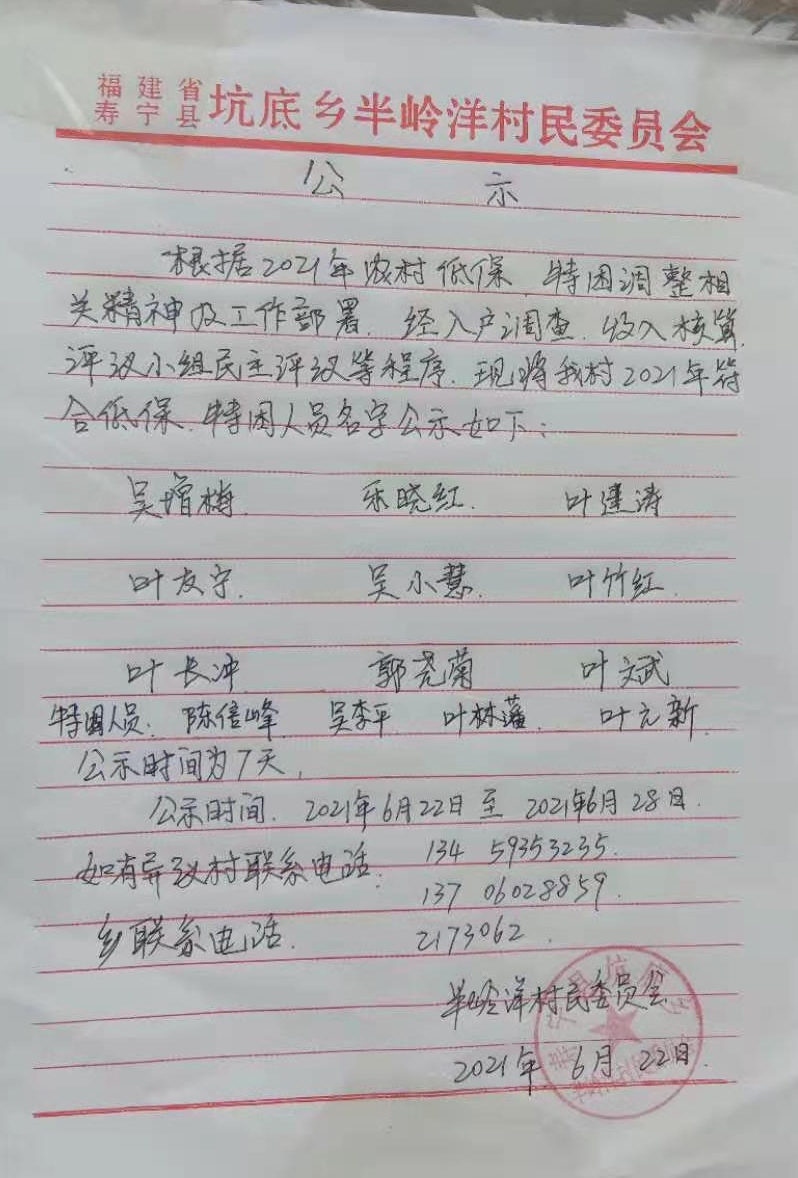 福建省
寿宁县 坑底乡半岭洋村民委员会
公 示
根据2021年农村低保、特困调整相
关精神及工作部署、经入户调查、收入核算、
评议小组民主评议等程序、现将我村2021年符
合低保、特困人员名字公示如下：
吴增梅、 乐晓红、 叶建涛
叶友宁、 吴小慧、 叶竹红、
叶长冲 郭尧菊 叶斌
特困人员、陈信峰、 吴李平 叶林藩、 叶元新、
公示时间为7天，
公示时间、2021年6月22日至2021年6月28日、
如有异议村联系电话： 134 59353235.
137 06028859.
乡联系电话、 2173062.
半岭洋村民委员会
2021年 6月 22日.